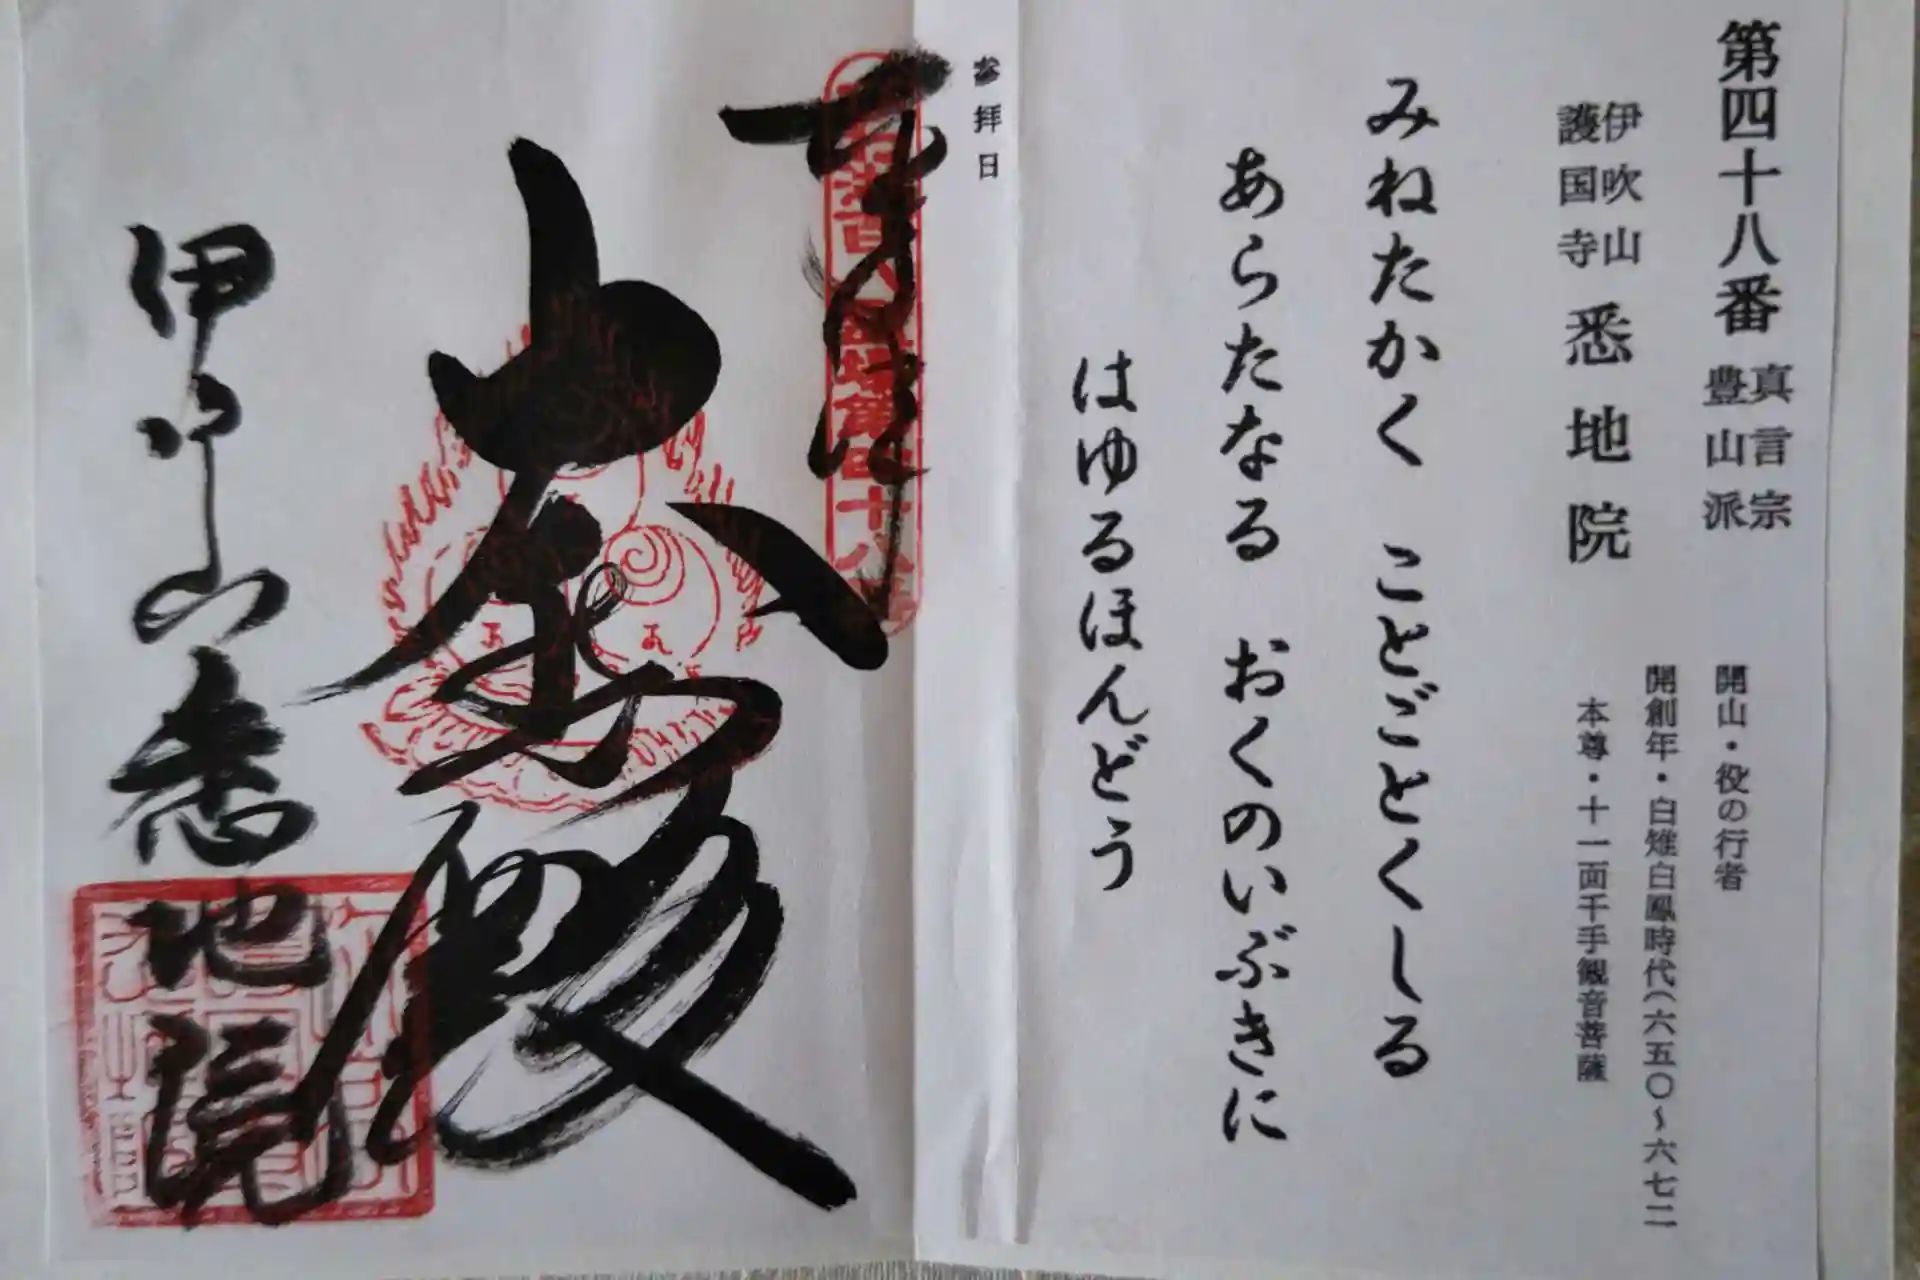 第四十八番 真言宗 豊山派
伊吹山 護国寺 悉地院
開山・役の行者
開創年・白雉白鳳時代(六五〇～六七二
本尊・十一面千手観音菩薩
みねたかく ことごとくしる
あらたなる おくのいぶきに
はゆるほんどう
参拝日
奉拝
大悲殿
伊吹山悉地院